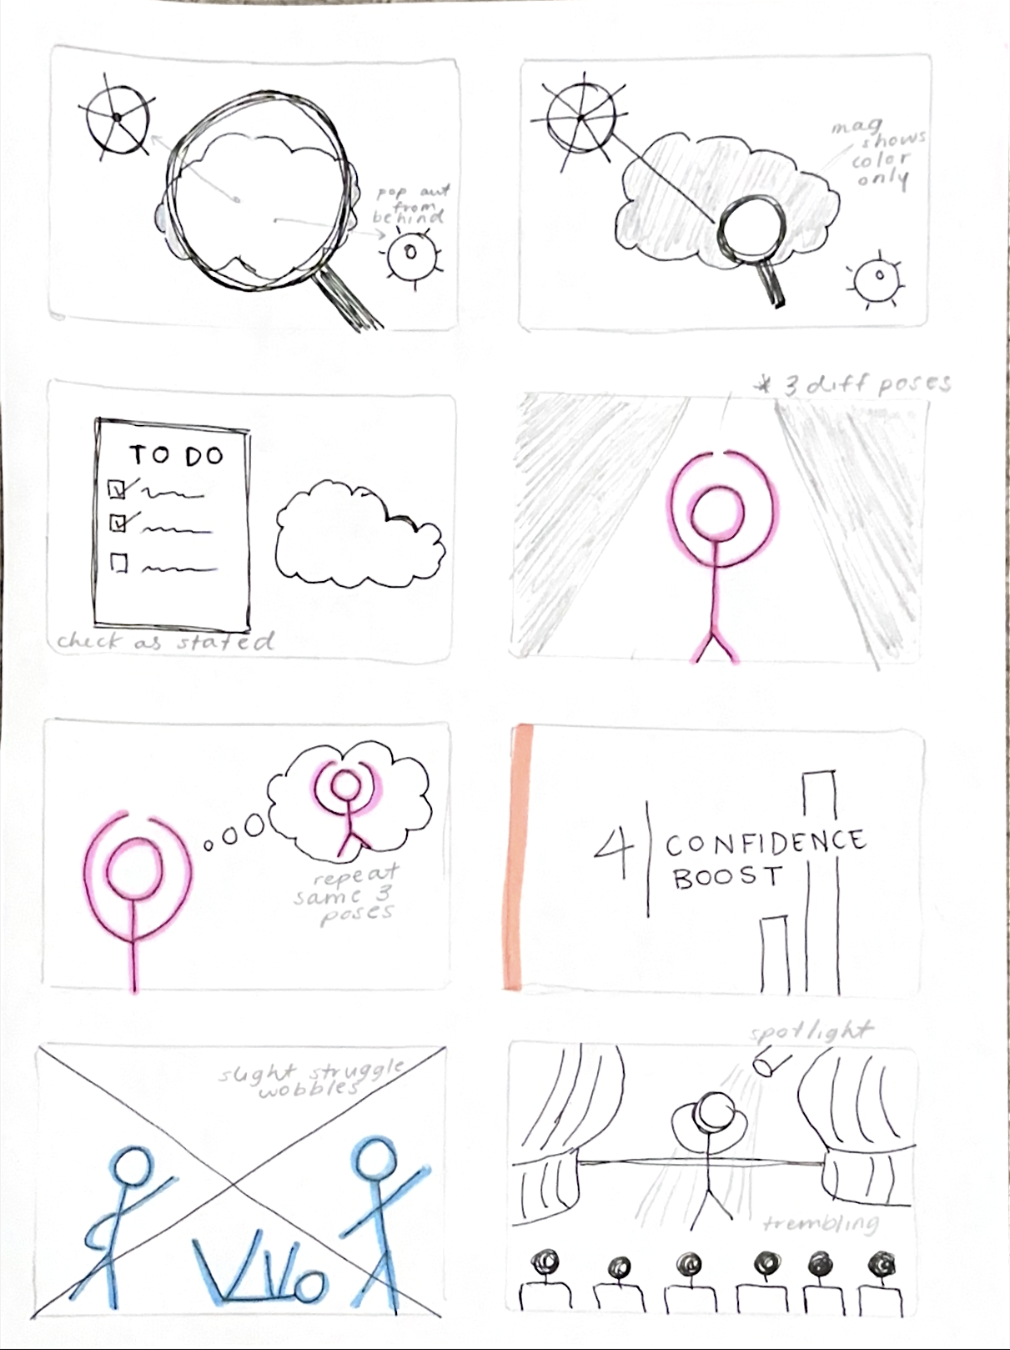 pop out
from
behind
mag
shows
color
only
TO DO
check as stated
* 3 diff poses
repeat
same 3
poses
4
CONFIDENCE
BOOST
slight struggle
wobbles
spotlight
trembling